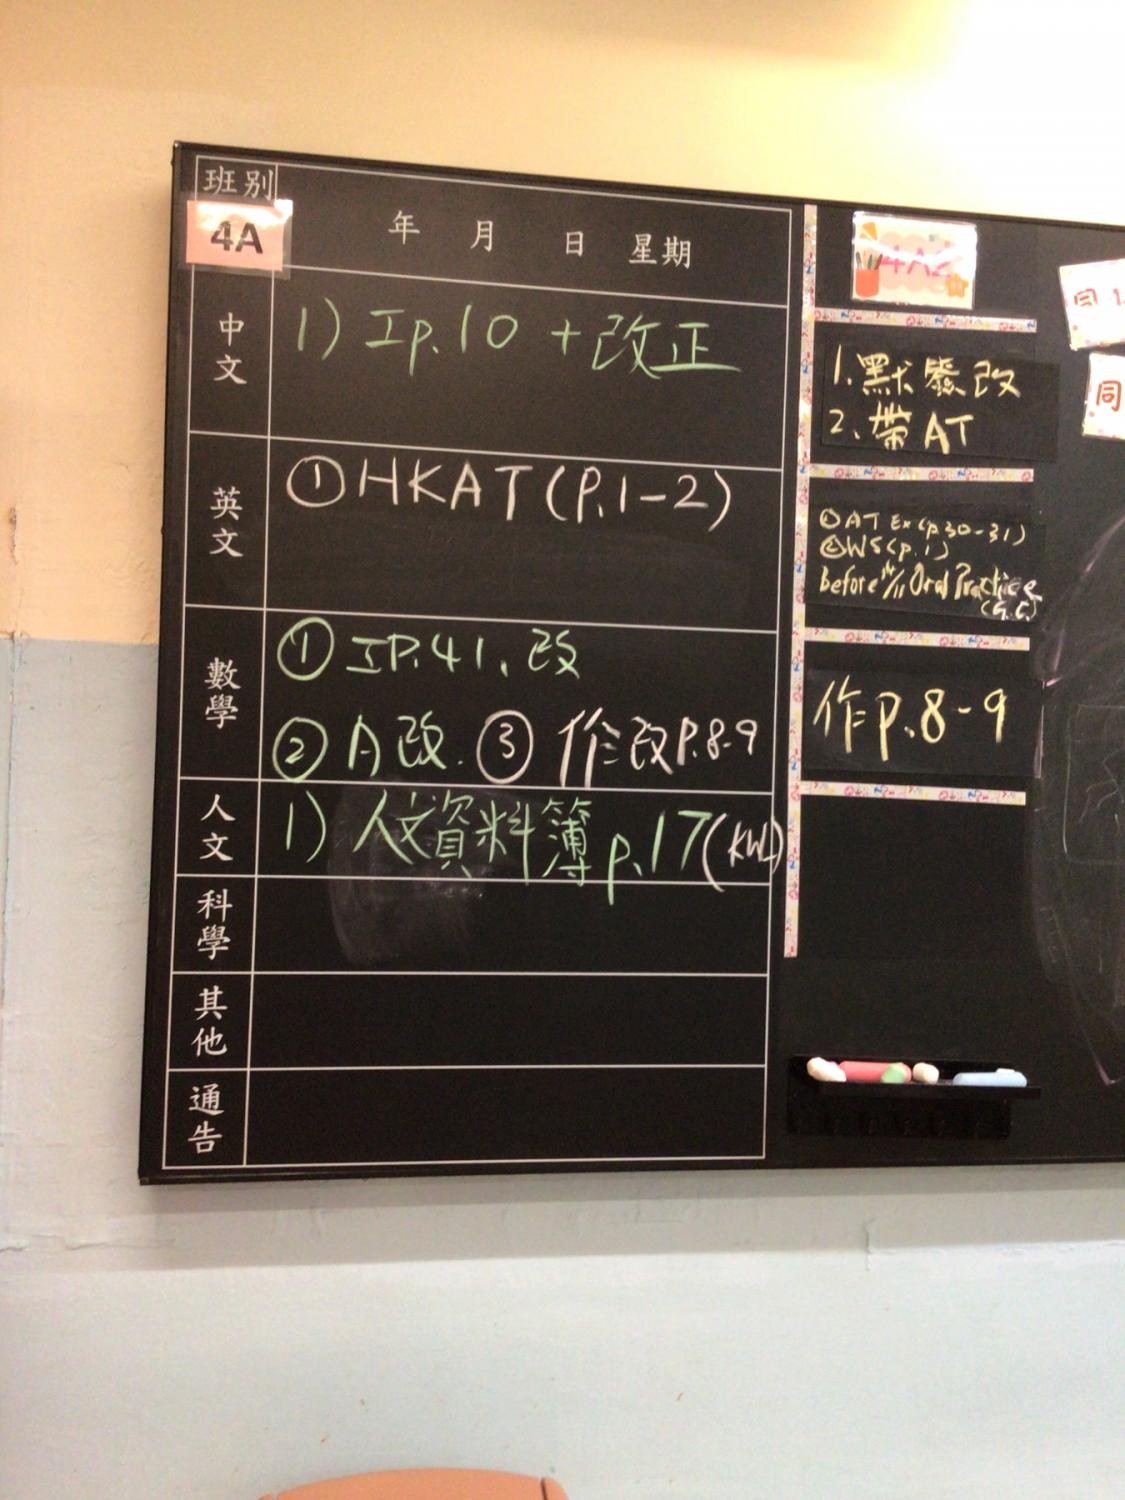 班別
4A
年 月 日 星期
中文
1) 工p.10 + 改正
英文
① HKAT (P.1-2)
數學
① 工P.41、改
② A改. ③ 作改P.8-9
人文
1) 人文資料簿 p.17 (KWL)
科學
其他
通告
4A2
1. 默簽改
2. 帶AT
① AT Ex (p.30-31)
② WS (p.1)
before 14/11 Oral Practice
作p.8-9
同
同